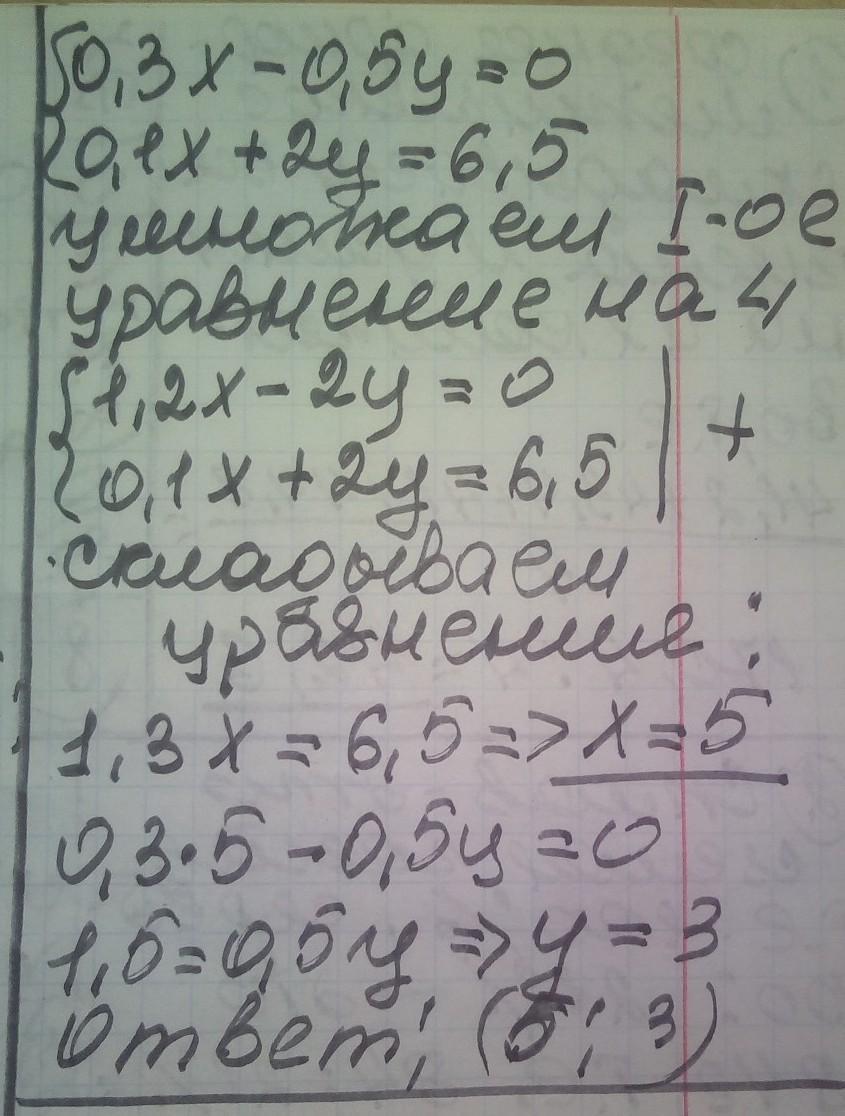 {0,3x - 0,5y = 0
{0,1x + 2y = 6,5
умножаем I-ое
уравнение на 4
{1,2x - 2y = 0
{0,1x + 2y = 6,5 | +
складываем
уравнения:
1,3x = 6,5 => x = 5
0,3·5 - 0,5y = 0
1,5 = 0,5y => y = 3
Ответ: (5; 3)